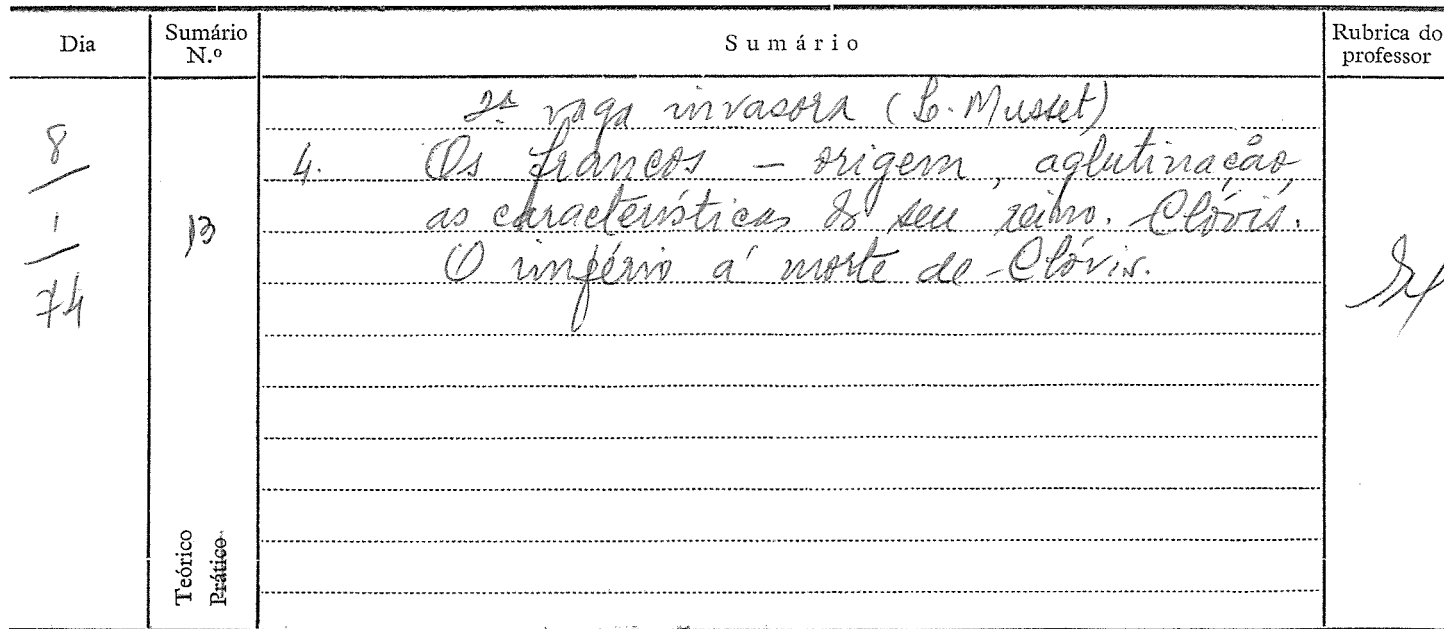 Dia
Sumário N.º
Sumário
Rubrica do professor
8
1
74
13
2ª vaga invasora (L. Musset)
4. Os francos – origem, aglutinação,
as características do seu reino. Clóvis.
O império á morte de Clóvis.
Teórico
Prático